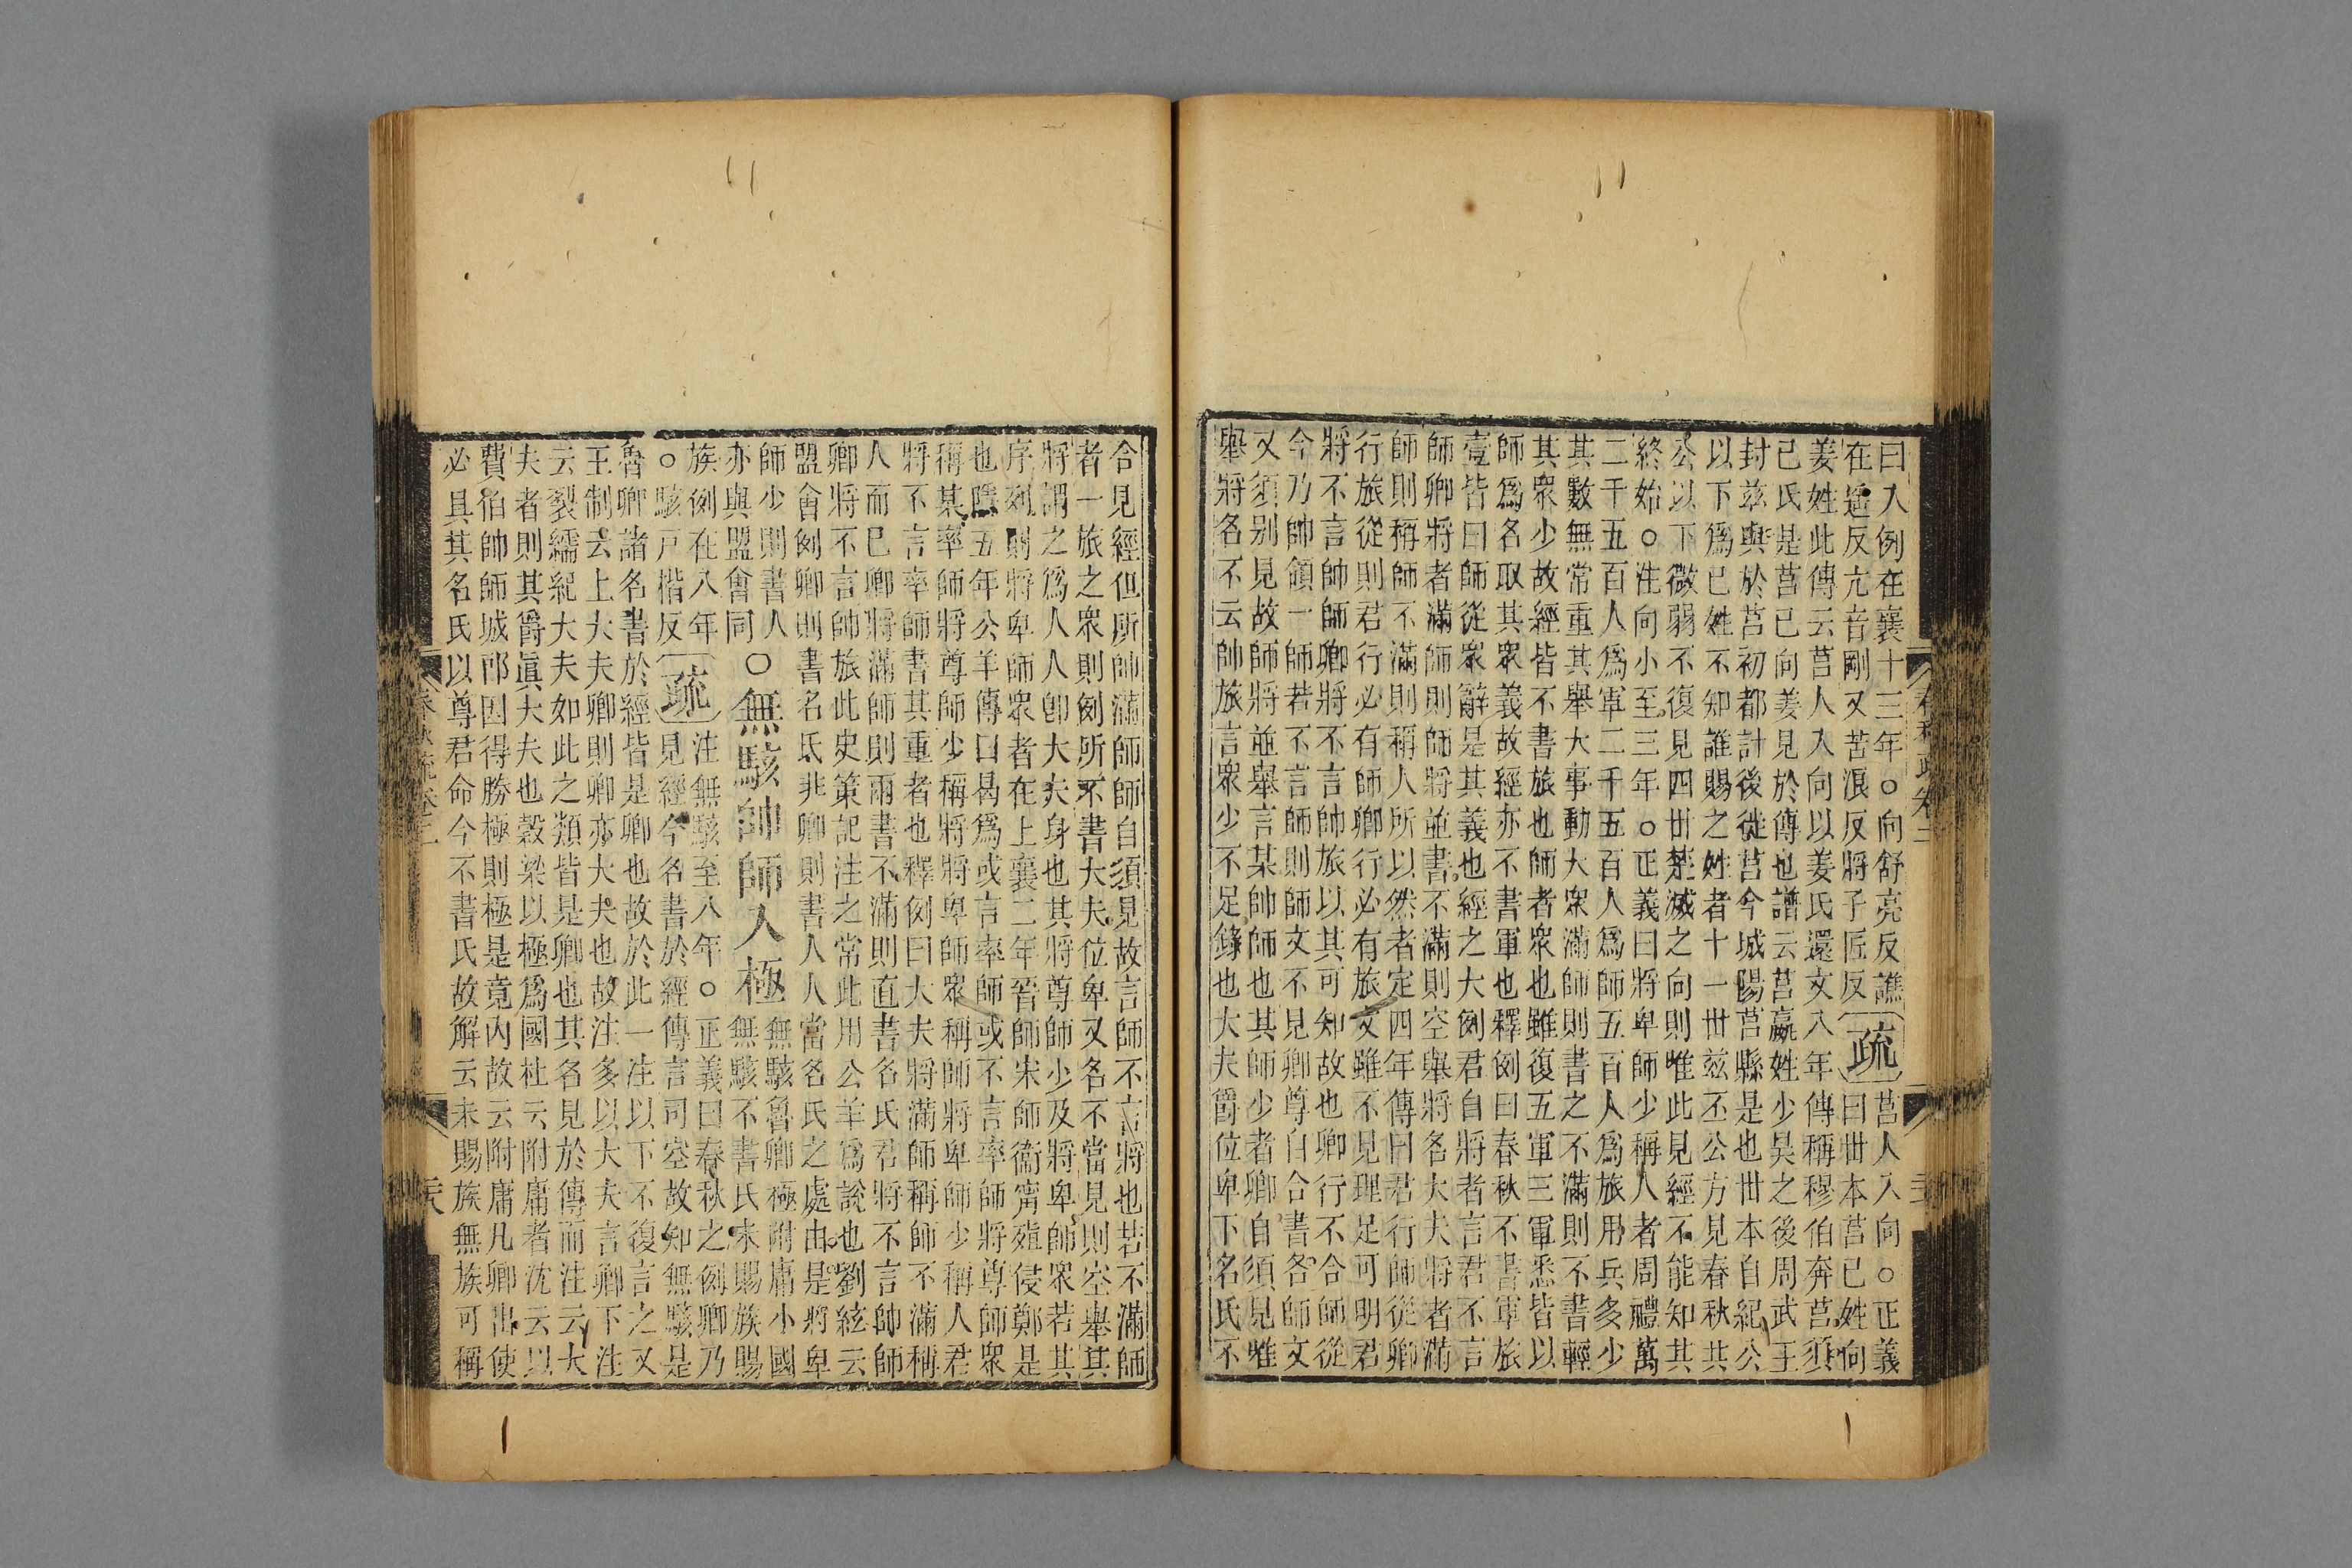 曰入例在襄十三年○向舒亮反譙
在遙反亢音剛又苦浪反將子匠反
疏
莒人入向○正義
曰世本莒已姓向
姜姓此傳云莒人入向以姜氏還文八年傳稱穆伯奔莒須
已氏是莒已向姜見於傳也譜云莒嬴姓少昊之後周武王
封兹輿於莒初都計後徙莒今城陽莒縣是也世本自紀公
以下爲已姓不知誰賜之姓者十一世兹丕公方見春秋共
公以下微弱不復見四世楚滅之向則唯此見經不能知其
終始○注向小至三年○正義曰將卑師少稱人者周禮萬
二千五百人爲軍二千五百人爲師五百人爲旅用兵多少
其數無常重其舉大事動大衆滿師則書之不滿則不書輕
其衆少故經皆不書旅也師者衆也雖復五軍三軍悉皆以
師爲名取其衆義故經亦不書軍也釋例曰春秋不書軍旅
壹皆曰師從衆辭是其義也經之大例君自將者言君不言
師卿將者滿師則師將並書不滿則空舉將名大夫將者滿
師則稱師不滿則稱人所以然者定四年傳曰君行師從卿
行旅從則君行必有師卿行必有旅文雖不見理足可明君
將不言帥師卿將不言帥旅以其可知故也卿行不合師從
今乃帥領一師若不言師則師文不見卿尊自合書名師文
又須别見故師將並舉言某帥師也其師少者卿自須見唯
舉將名不云帥旅言衆少不足錄也大夫爵位卑下名氏不
春秋疏卷二
合見經但所帥滿師師自須見故言師不言將也若不滿師
者一旅之衆則例所不書大夫位卑又名不當見則空舉其
將謂之爲人人卽大夫身也其將尊師少及將卑師衆若其
序列則將卑師衆者在上襄二年晉師宋師衞甯殖侵鄭是
也隱五年公羊傳曰曷爲或言率師或不言率師將尊師衆
稱某率師將尊師少稱將將卑師衆稱師將卑師少稱人君
將不言率師書其重者也釋例曰大夫將滿師稱師不滿稱
人而已卿將滿師則兩書不滿則直書名氏君將不言帥師
卿將不言帥旅此史策記注之常此用公羊爲說也劉炫云
盟會例卿則書名氏非卿則書人人當名氏之處由是將卑
師少則書人
亦與盟會同
○無駭帥師入極
無駭魯卿極附庸小國
無駭不書氏未賜族賜
族例在八年
○駭戸楷反
疏
注無駭至八年○正義曰春秋之例卿乃
見經今名書於經傳言司空故知無駭是
魯卿諸名書於經皆是卿也故於此一注以下不復言之又
王制云上大夫卿則卿亦大夫也故注多以大夫言卿下注
云裂繻紀大夫如此之類皆是卿也其名見於傳而注云大
夫者則其爵眞大夫也榖梁以極爲國杜云附庸者沈云以
費伯帥師城郎因得勝極則極是竟内故云附庸凡卿出使
必具其名氏以尊君命今不書氏故解云未賜族無族可稱